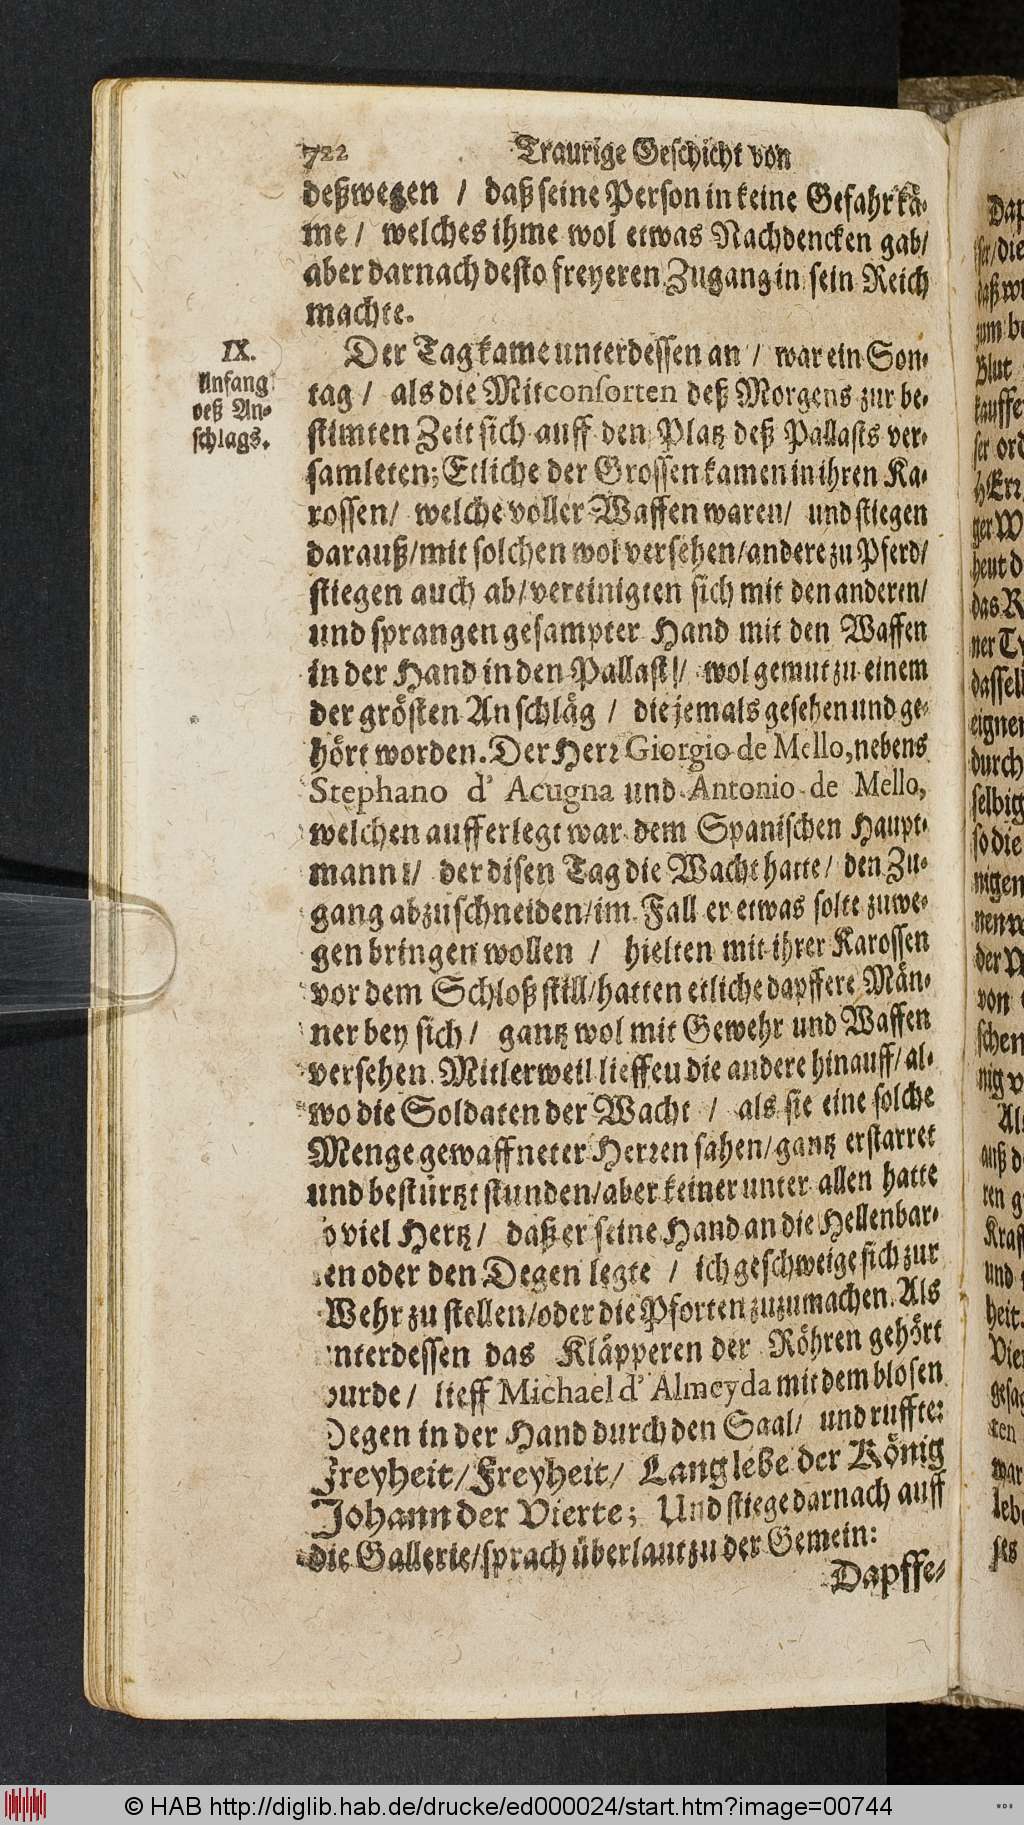 722 Traurige Geschicht von
deßwegen / daß seine Person in keine Gefahr kä-
me / welches ihme wol etwas Nachdencken gab/
aber darnach desto freyeren Zugang in sein Reich
machte.
IX.
Anfang
deß An-
schlags.
Der Tag kame unterdessen an / war ein Son-
tag / als die Mitconsorten deß Morgens zur be-
stimten Zeit sich auff den Platz deß Pallasts ver-
samleten; Etliche der Grossen kamen in ihren Ka-
rossen/ welche voller Waffen waren/ und stiegen
darauß/mit solchen wol versehen/andere zu Pferd/
stiegen auch ab/vereinigten sich mit den anderen/
und sprangen gesampter Hand mit den Waffen
in der Hand in den Pallast!/ wol gemut zu einem
der grösten Anschläg / die jemals gesehen und ge-
hört worden. Der Herr Giorgio de Mello, nebens
Stephano d' Acugna und Antonio de Mello,
welchen aufferlegt war dem Spanischen Haupt-
mann / der disen Tag die Wacht hatte / den Zu-
gang abzuschneiden/im Fall er etwas solte zuwe-
gen bringen wollen / hielten mit ihrer Karossen
vor dem Schloß still/hatten etliche dapffere Män-
ner bey sich / gantz wol mit Gewehr und Waffen
versehen. Mitlerweil lieffen die andere hinauff/ al-
wo die Soldaten der Wacht / als sie eine solche
Menge gewaffneter Herren sahen/gantz erstarret
und bestürtzt stunden/aber keiner unter allen hatte
so viel Hertz / daß er seine Hand an die Hellenbar-
ten oder den Degen legte / ich geschweige sich zur
Wehr zu stellen/oder die Pforten zuzumachen. Als
unterdessen das Kläpperen der Röhren gehört
wurde / lieff Michael d' Almeyda mit dem blosen
Degen in der Hand durch den Saal/ und ruffte:
Freyheit/Freyheit/ Lang lebe der König
Johann der Vierte; Und stiege darnach auff
die Gallerie/sprach überlaut zu der Gemein:
Dapffe-
© HAB http://diglib.hab.de/drucke/ed000024/start.htm?image=00744